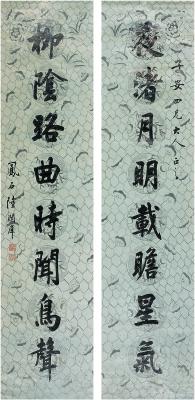 葭渚月明載瞻星氣
子安四兄大人正之
柳陰路曲時聞鳥聲
鳳石陸潤庠